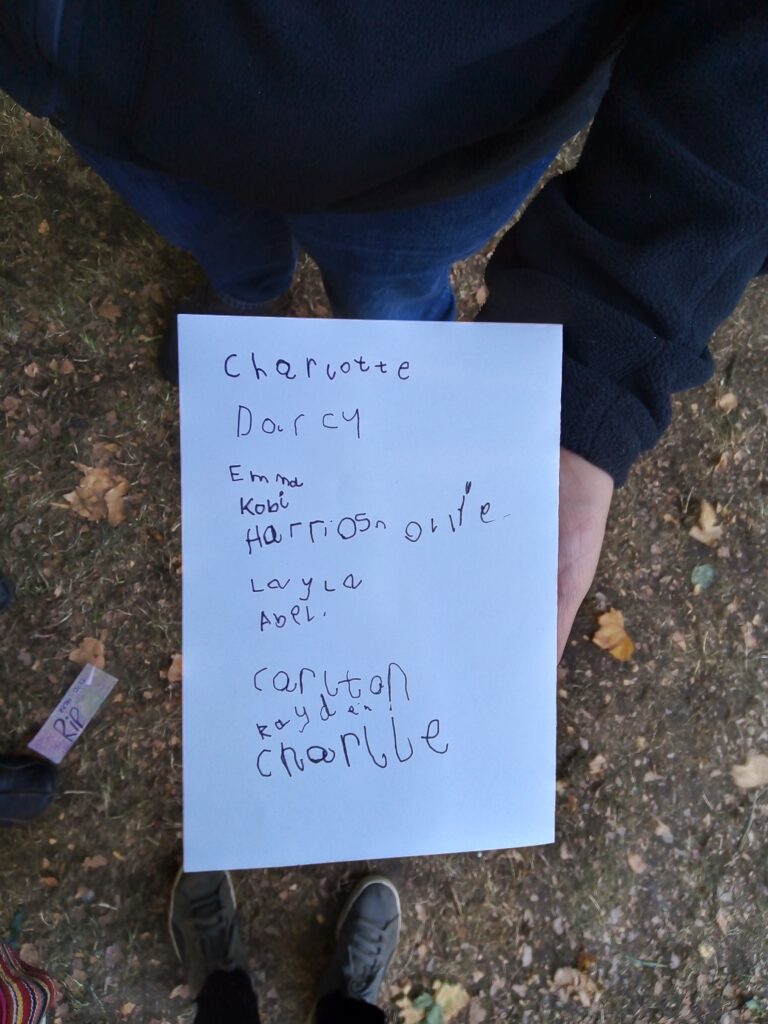 Charlotte
Darcy
Emma
Kobi
Harriosn ollie.
Layla
Abel.
carlton
Kayden
charlie
RIP